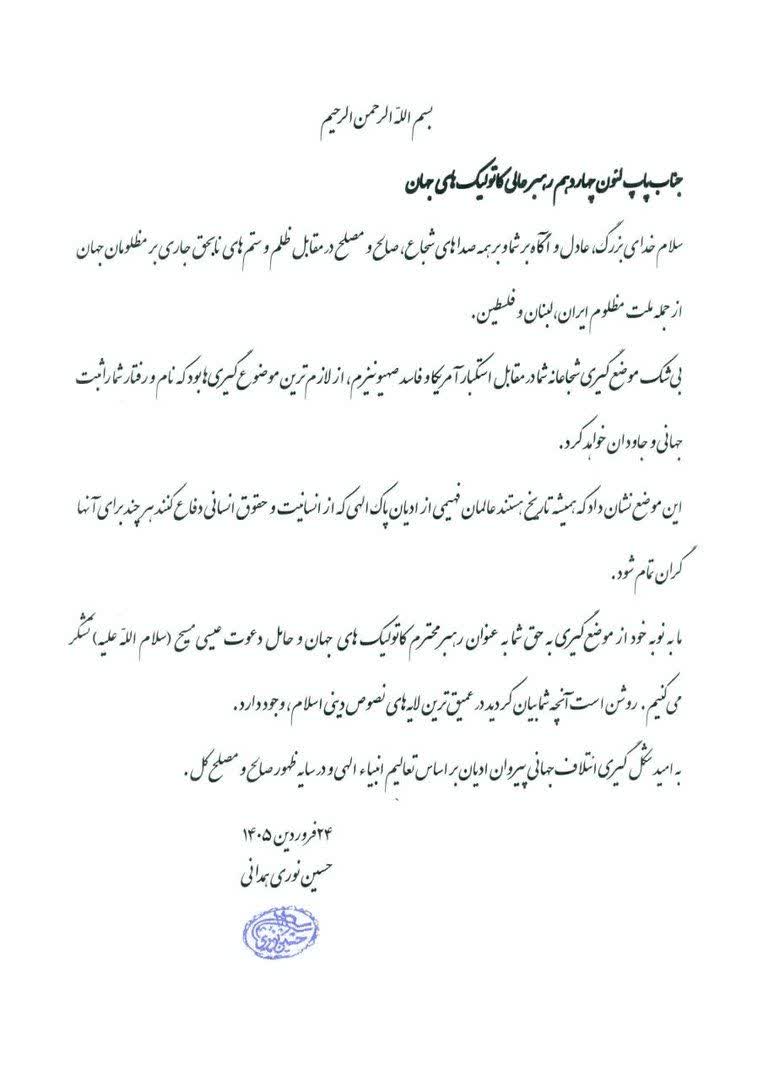 بسم الله الرحمن الرحیم
جناب پاپ لئون چهاردهم رهبر عالی کاتولیک های جهان
سلام خدای بزرگ، عادل و آگاه بر شما و بر همه صداهای شجاع، صالح و مصلح در مقابل ظلم و ستم های نابحق جاری بر مظلومان جهان
از جمله ملت مظلوم ایران، لبنان و فلسطین.
بی شک موضع گیری شجاعانه شما در مقابل استکبار آمریکا و فاسد صهیونیزم، از لازم ترین موضوع گیری ها بود که نام و رفتار شما را ثبت
جهانی و جاودان خواهد کرد.
این موضع نشان داد که همیشه تاریخ هستند عالمان فهیمی از ادیان پاک الهی که از انسانیت و حقوق انسانی دفاع کنند هر چند برای آنها
گران تمام شود.
ما به نوبه خود از موضع گیری به حق شما به عنوان رهبر محترم کاتولیک های جهان و حامل دعوت عیسی مسیح (سلام الله علیه) تشکر
می کنیم. روشن است آنچه شما بیان کردید در عمیق ترین لایه های نصوص دینی اسلام، وجود دارد.
به امید شکل گیری ائتلاف جهانی پیروان ادیان بر اساس تعالیم انبیاء الهی و در سایه ظهور صالح و مصلح کل.
۲۴فروردین ۱۴۰۵
حسین نوری همدانی